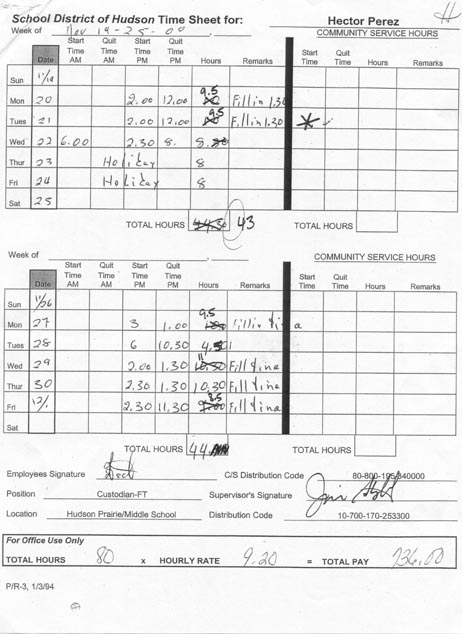 School District of Hudson Time Sheet for: Hector Perez H
Week of Nov 19-25-00 COMMUNITY SERVICE HOURS
Date Start Time AM Quit Time AM Start Time PM Quit Time PM Hours Remarks Start Time Quit Time Hours Remarks
Sun 11/19
Mon 20 2.00 12.00 9.5 Fill in 1.30
Tues 21 2.00 12.00 9.5 Fill in 1.30 *
Wed 22 6.00 2.30 8. 8.
Thur 23 Holiday 8
Fri 24 Holiday 8
Sat 25
TOTAL HOURS 44.50 43
Week of , COMMUNITY SERVICE HOURS
Start Time AM Quit Time AM Start Time PM Quit Time PM Hours Remarks Start Time Quit Time Hours Remarks
Date
Sun 11/26
Mon 27 3 1.00 9.5 Fill in tina
Tues 28 6 10,30 4.5
Wed 29 2.00 1.30 11 10.50 Fill tina
Thur 30 2.30 1.30 10,30 Fill tina
Fri 12/1. 2,30 11,30 8.5 9.00 Fill tina
Sat
TOTAL HOURS 44
Employees Signature C/S Distribution Code 80-800-195/340000
Position Custodian-FT Supervisor's Signature
Location Hudson Prairie/Middle School Distribution Code 10-700-170-253300
For Office Use Only
TOTAL HOURS 80 x HOURLY RATE 9.20 = TOTAL PAY 736.00
P/R-3, 1/3/94